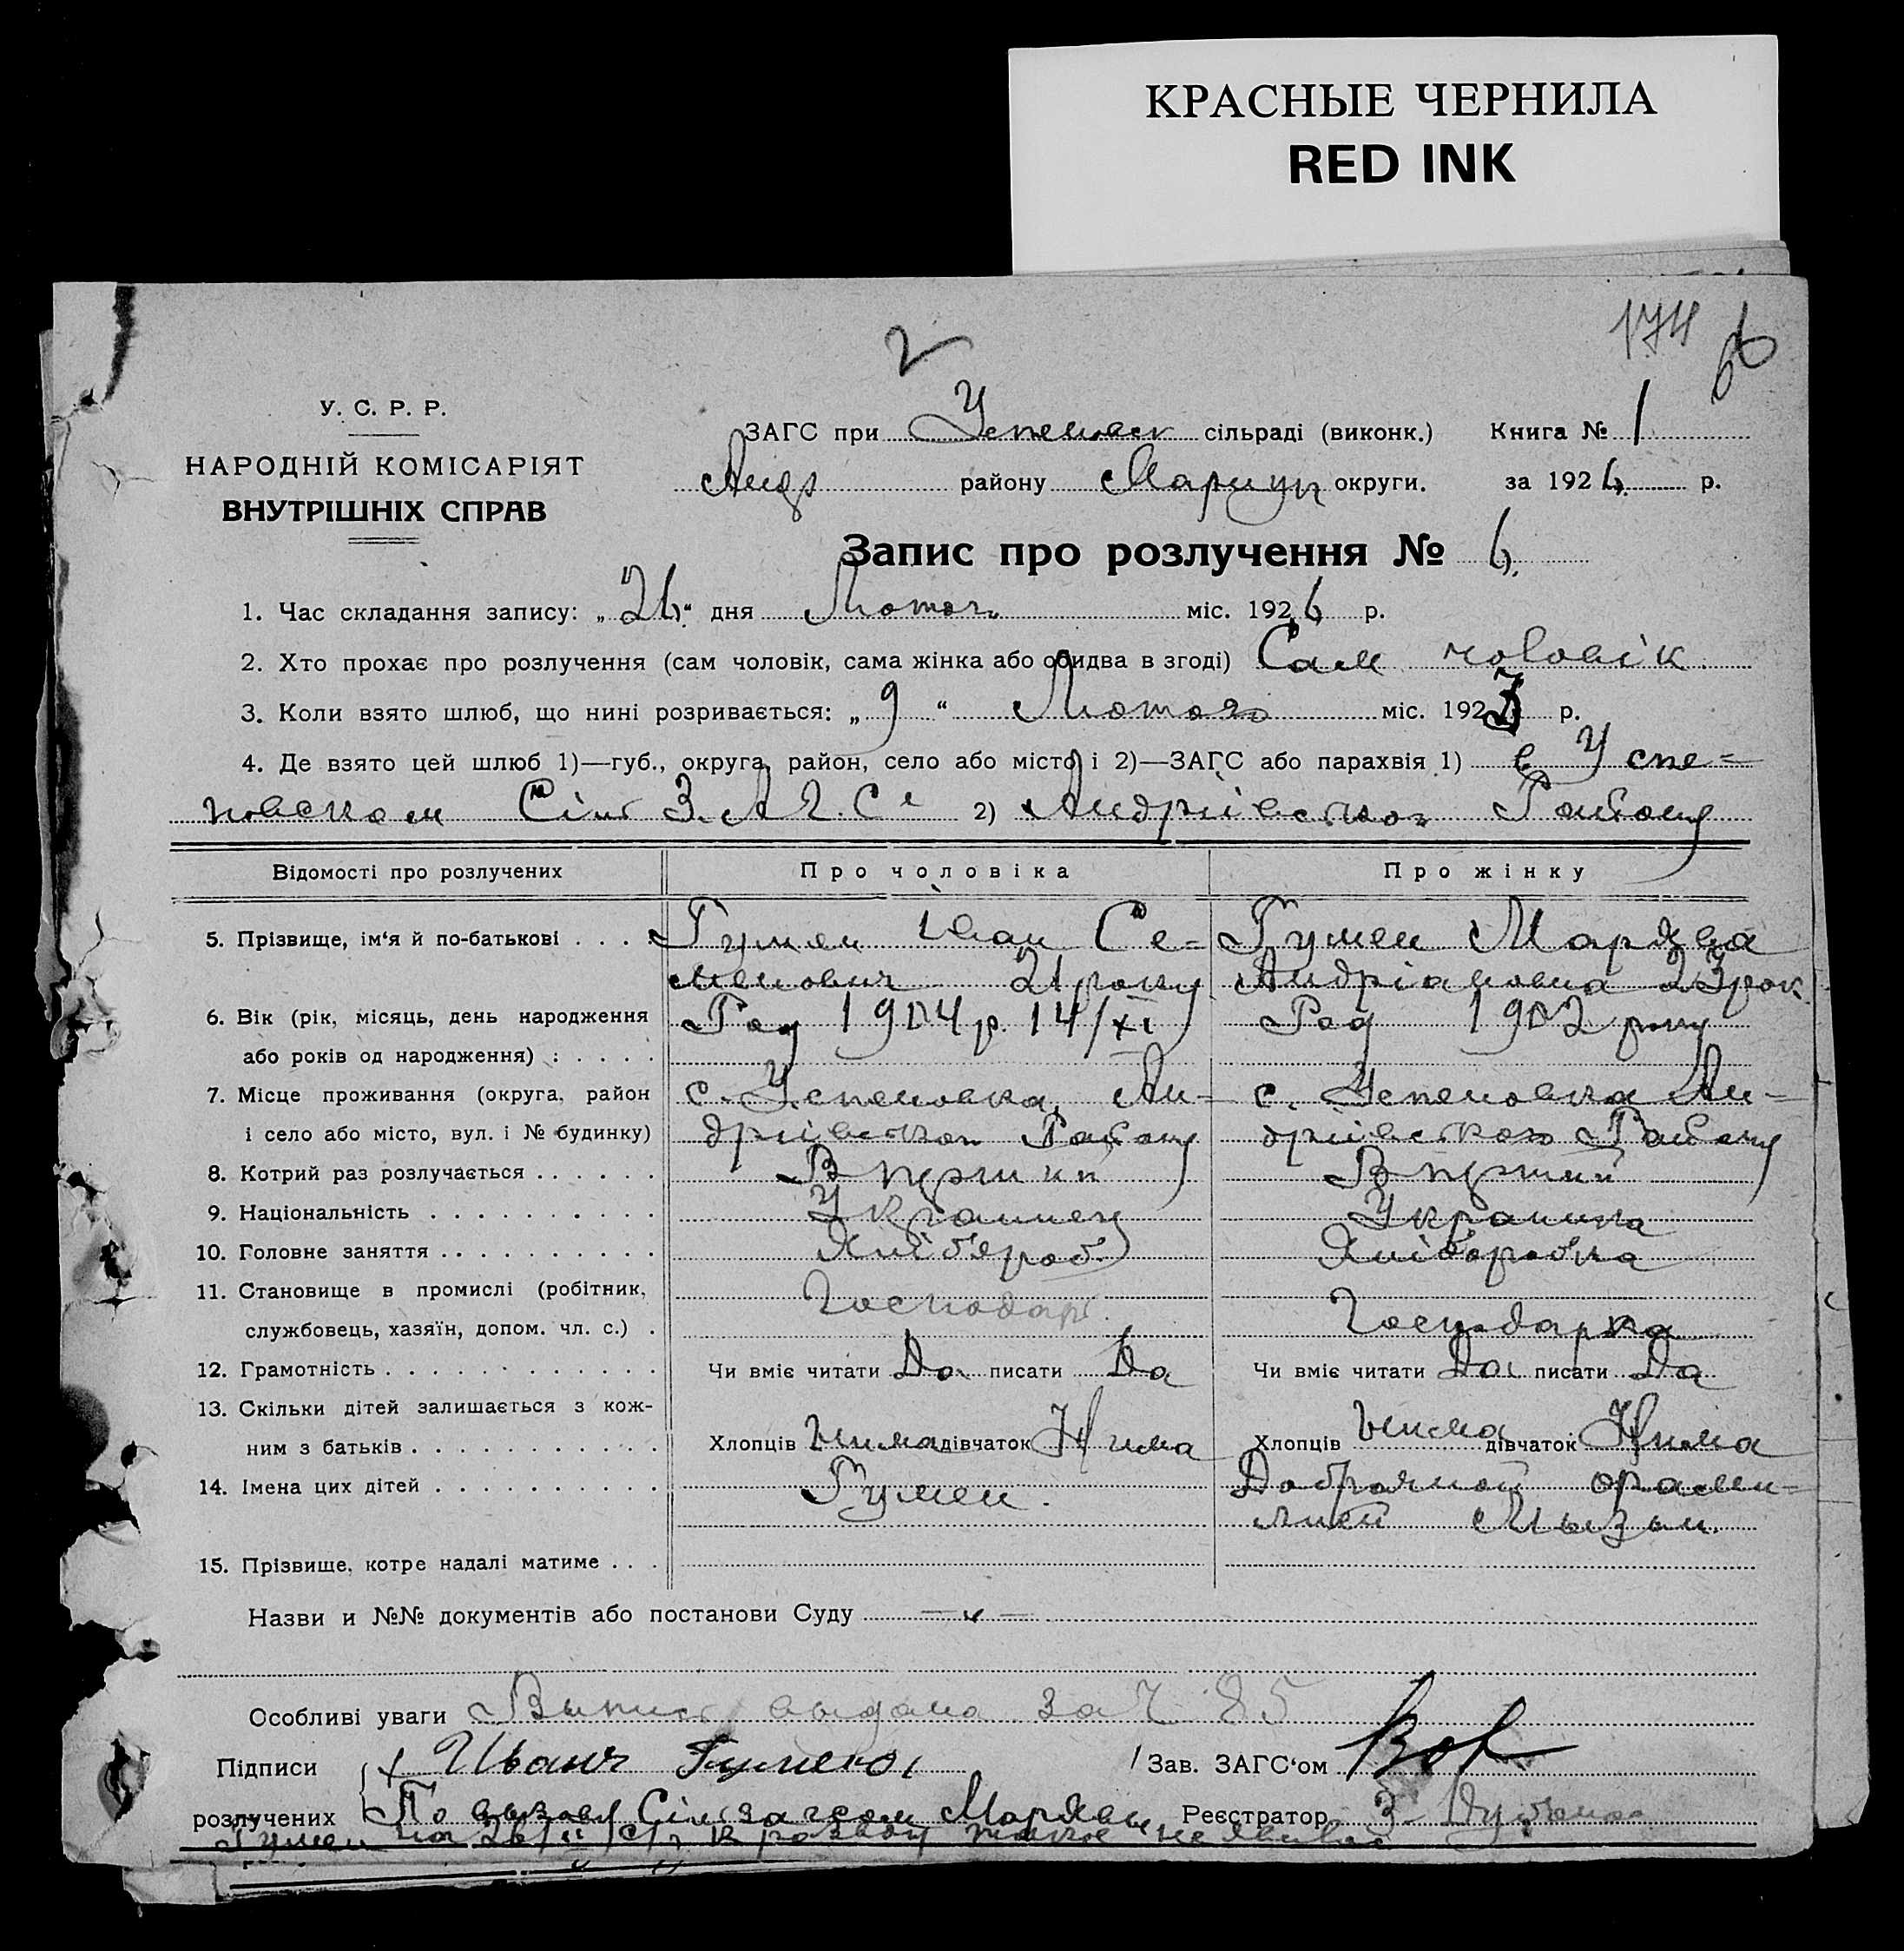 КРАСНЫЕ ЧЕРНИЛА
RED INK
174
2
У. С. Р. Р.
НАРОДНІЙ КОМІСАРІЯТ
ВНУТРІШНІХ СПРАВ
ЗАГС при Успеновск сільраді (виконк.) Книга № 1
Андр району Мариуп округи. за 1926 р.
Запис про розлучення № 6.
1. Час складання запису: „26“ дня Лютого міс. 1926 р.
2. Хто прохає про розлучення (сам чоловік, сама жінка або обидва в згоді) Сам чоловік.
3. Коли взято шлюб, що нині розривається: „9“ Лютого міс. 192 р.
4. Де взято цей шлюб 1)—губ., округа, район, село або місто і 2)—ЗАГС або парахвія 1) в Успе=
новском Сіль З.А.Г.С. 2) Андриівського Району
Відомості про розлучених Про чоловіка Про жінку
5. Прізвище, ім‘я й по-батькові . . . . Гумен Іван Се= Гумен Мархва
менович 21 року Андріановна 23 рок
6. Вік (рік, місяць, день народження Род 1904 р. 14/XI Род 1902 року
або років од народження) : . . . .
7. Місце проживання (округа, район с. Успеновка, Ан- с. Успеновка Ан=
і село або місто, вул. і № будинку) дриівського Району дриівського Району
8. Котрий раз розлучається . . . . . . В перший В перший
9. Національність . . . . . . . . . . Украинец Украинка
10. Головне заняття . . . . . . . . . . Хлібороб. Хліборобка
11. Становище в промислі (робітник,
службовець, хазяїн, допом. чл. с.) . Господар. Господарка
12. Грамотність . . . . . . . . . . . . Чи вміє читати Да писати Да Чи вміє читати Да писати Да
13. Скільки дітей залишається з кож-
ним з батьків . . . . . . . . . . . Хлопців Нима дівчаток Нима Хлопців Нима дівчаток Нима
14. Імена цих дітей . . . . . . . . . . Гумен. Добрачной фами=
лией
15. Прізвище, котре надалі матиме . . .
Назви и №№ документів або постанови Суду — „ —
Особливі уваги Выпись выдана за № 85
Підписи Иванъ Гумеюн Зав. ЗАГС‘ом
розлучених По вызову Сільзагсом Мархвы Реєстратор
Гумен на 26/II с/г к разводу не явилась